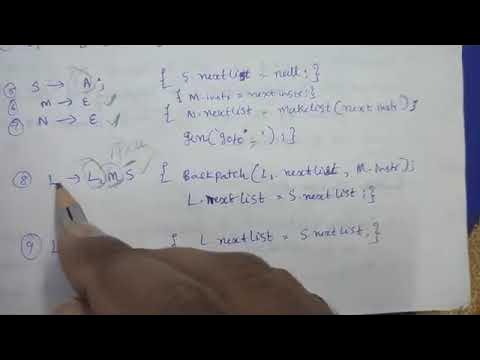 S → A ; { S. nextlist = null; }
M → ε { M. instr = nextinstr; }
⑦ N → ε { N. nextlist = makelist (nextinstr);
gen('goto -'); ; }
⑧ L → L₁ M S { Backpatch (L₁. nextlist, M. instr);
L. nextlist = S. nextlist; }
⑨ L { L nextlist = S nextlist; }